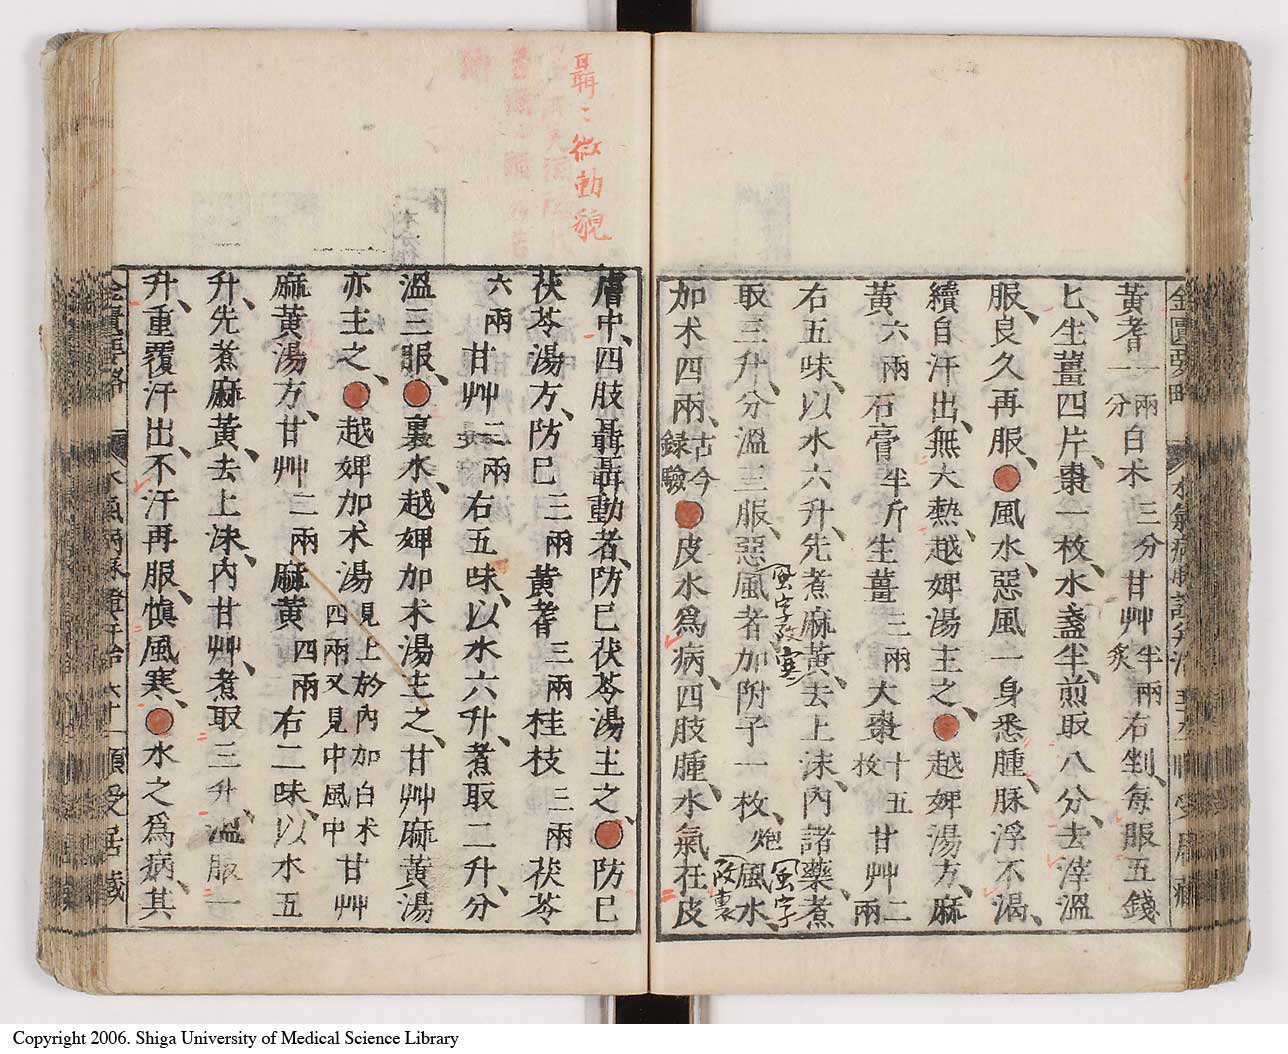 金匱要略
水氣病脉證并治
黃耆一兩一分白朮三分甘艸半兩炙右剉每服五錢
匕生薑四片棗一枚水盞半煎取八分去滓溫
服良久再服●風水惡風一身悉腫脉浮不渴
續自汗出無大熱越婢湯主之●越婢湯方麻
黃六兩石膏半斤生薑三兩大棗十五枚甘艸二兩
右五味以水六升先煮麻黃去上沫內諸藥煮
風字改寒
風字改裏
取三升分溫三服惡風者加附子一枚炮風水
加朮四兩古今録驗●皮水爲病四肢腫水氣在皮
聶〻微動貌
膚中四肢聶聶動者防已茯苓湯主之●防已
茯苓湯方防已三兩黃耆三兩桂枝三兩茯苓
六兩甘艸二兩右五味以水六升煮取二升分
溫三服●裏水越婢加朮湯主之甘艸麻黃湯
亦主之●越婢加朮湯見上於內加白朮四兩又見中風中甘艸
麻黃湯方甘艸二兩麻黃四兩右二味以水五
升先煮麻黃去上沫內甘艸煮取三升溫服一
升重覆汗出不汗再服慎風寒●水之爲病其
金匱要略
Copyright 2006. Shiga University of Medical Science Library